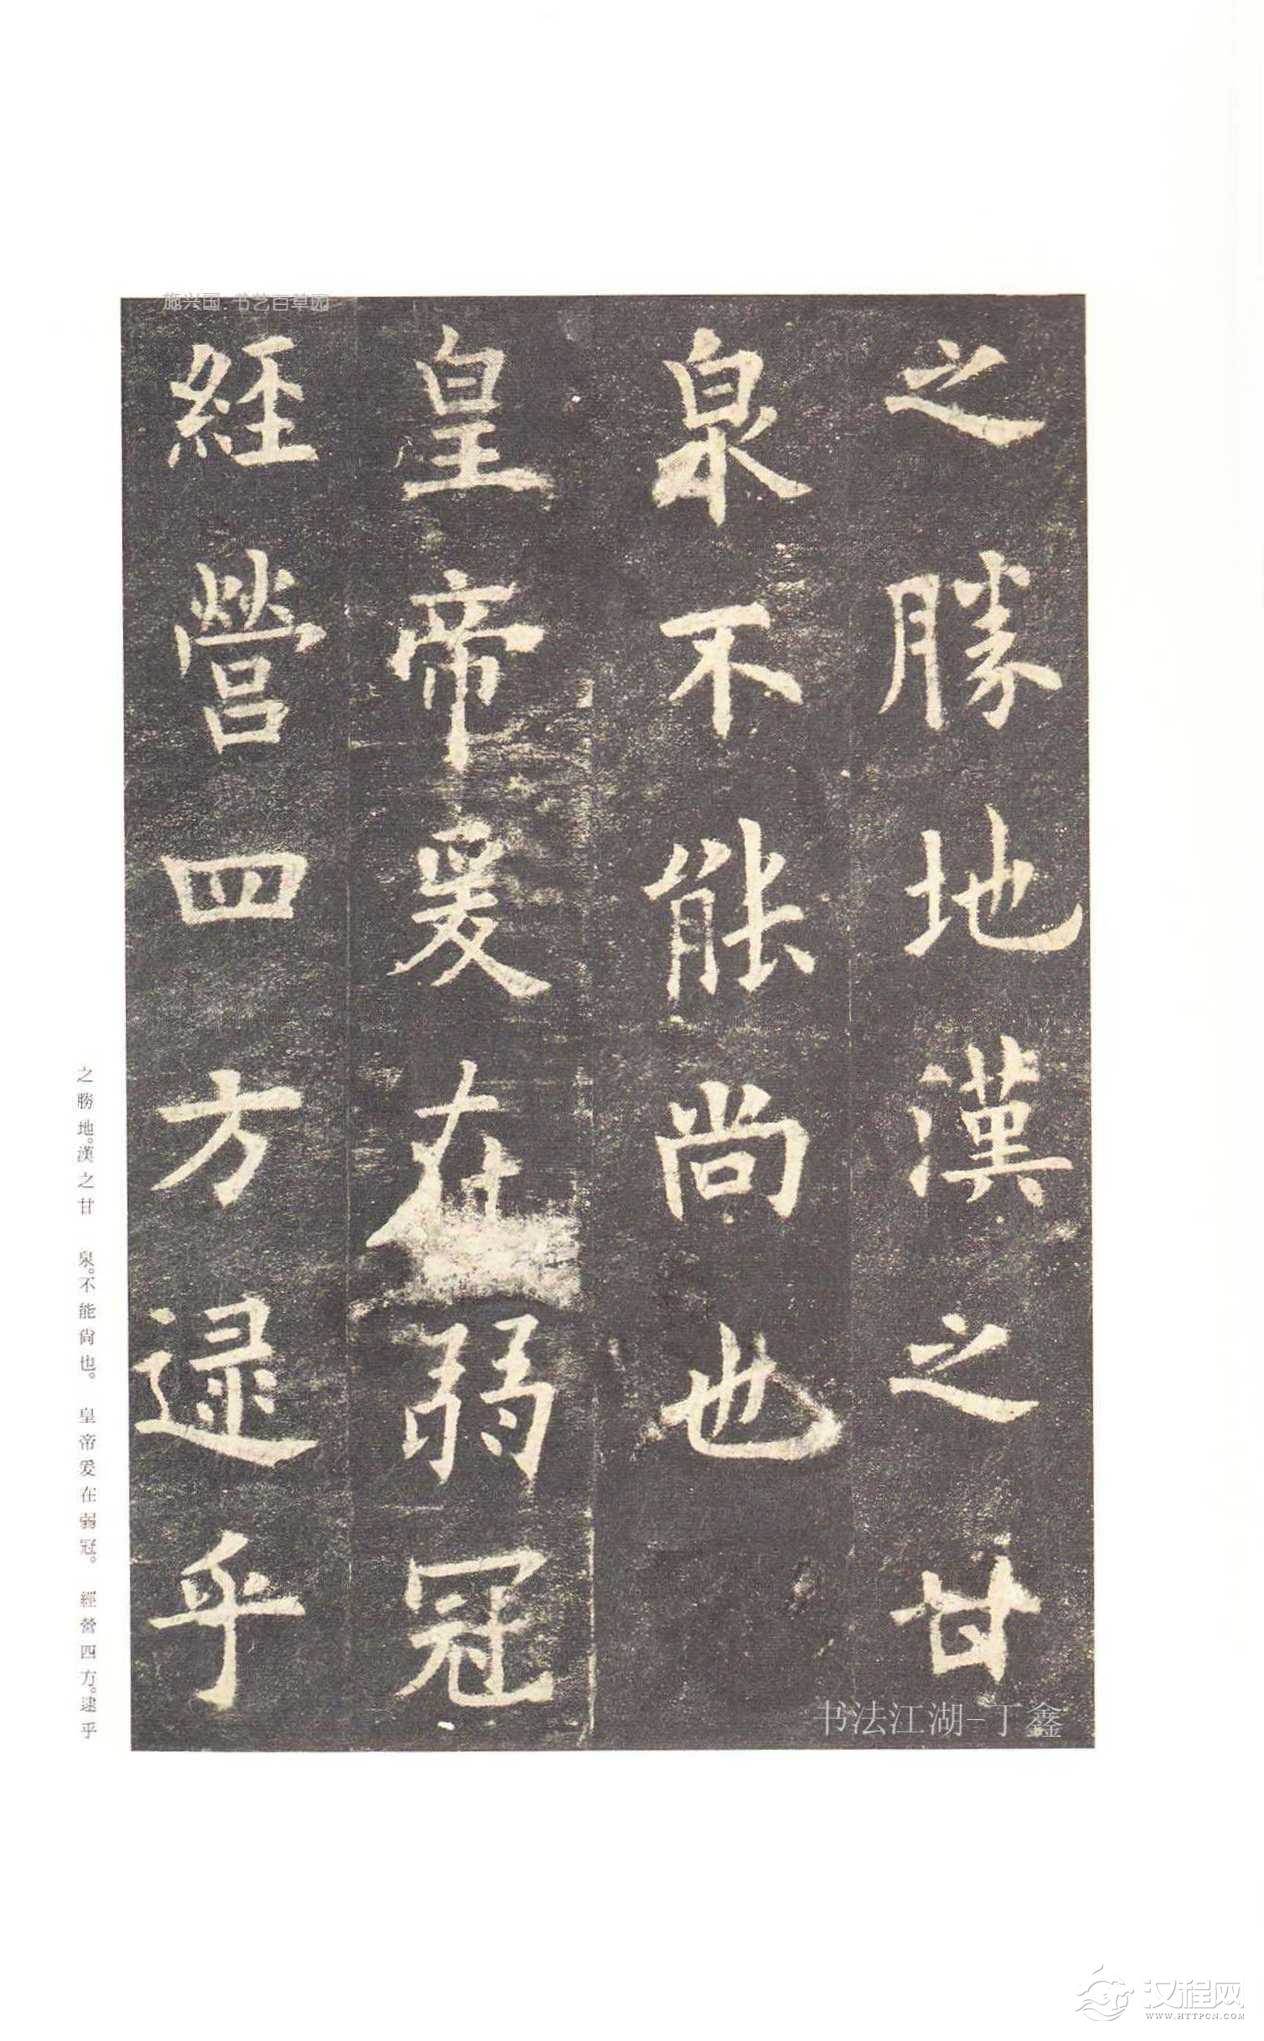 之勝地漢之甘
泉不能尚也
皇帝爰在弱冠
經營四方逯乎
之勝地。漢之甘　泉。不能尚也。　皇帝爰在弱冠。　經營四方。逮乎
施兴国.书艺百草园
书法江湖-丁鑫
汉程网
WWW.HTTPCN.COM